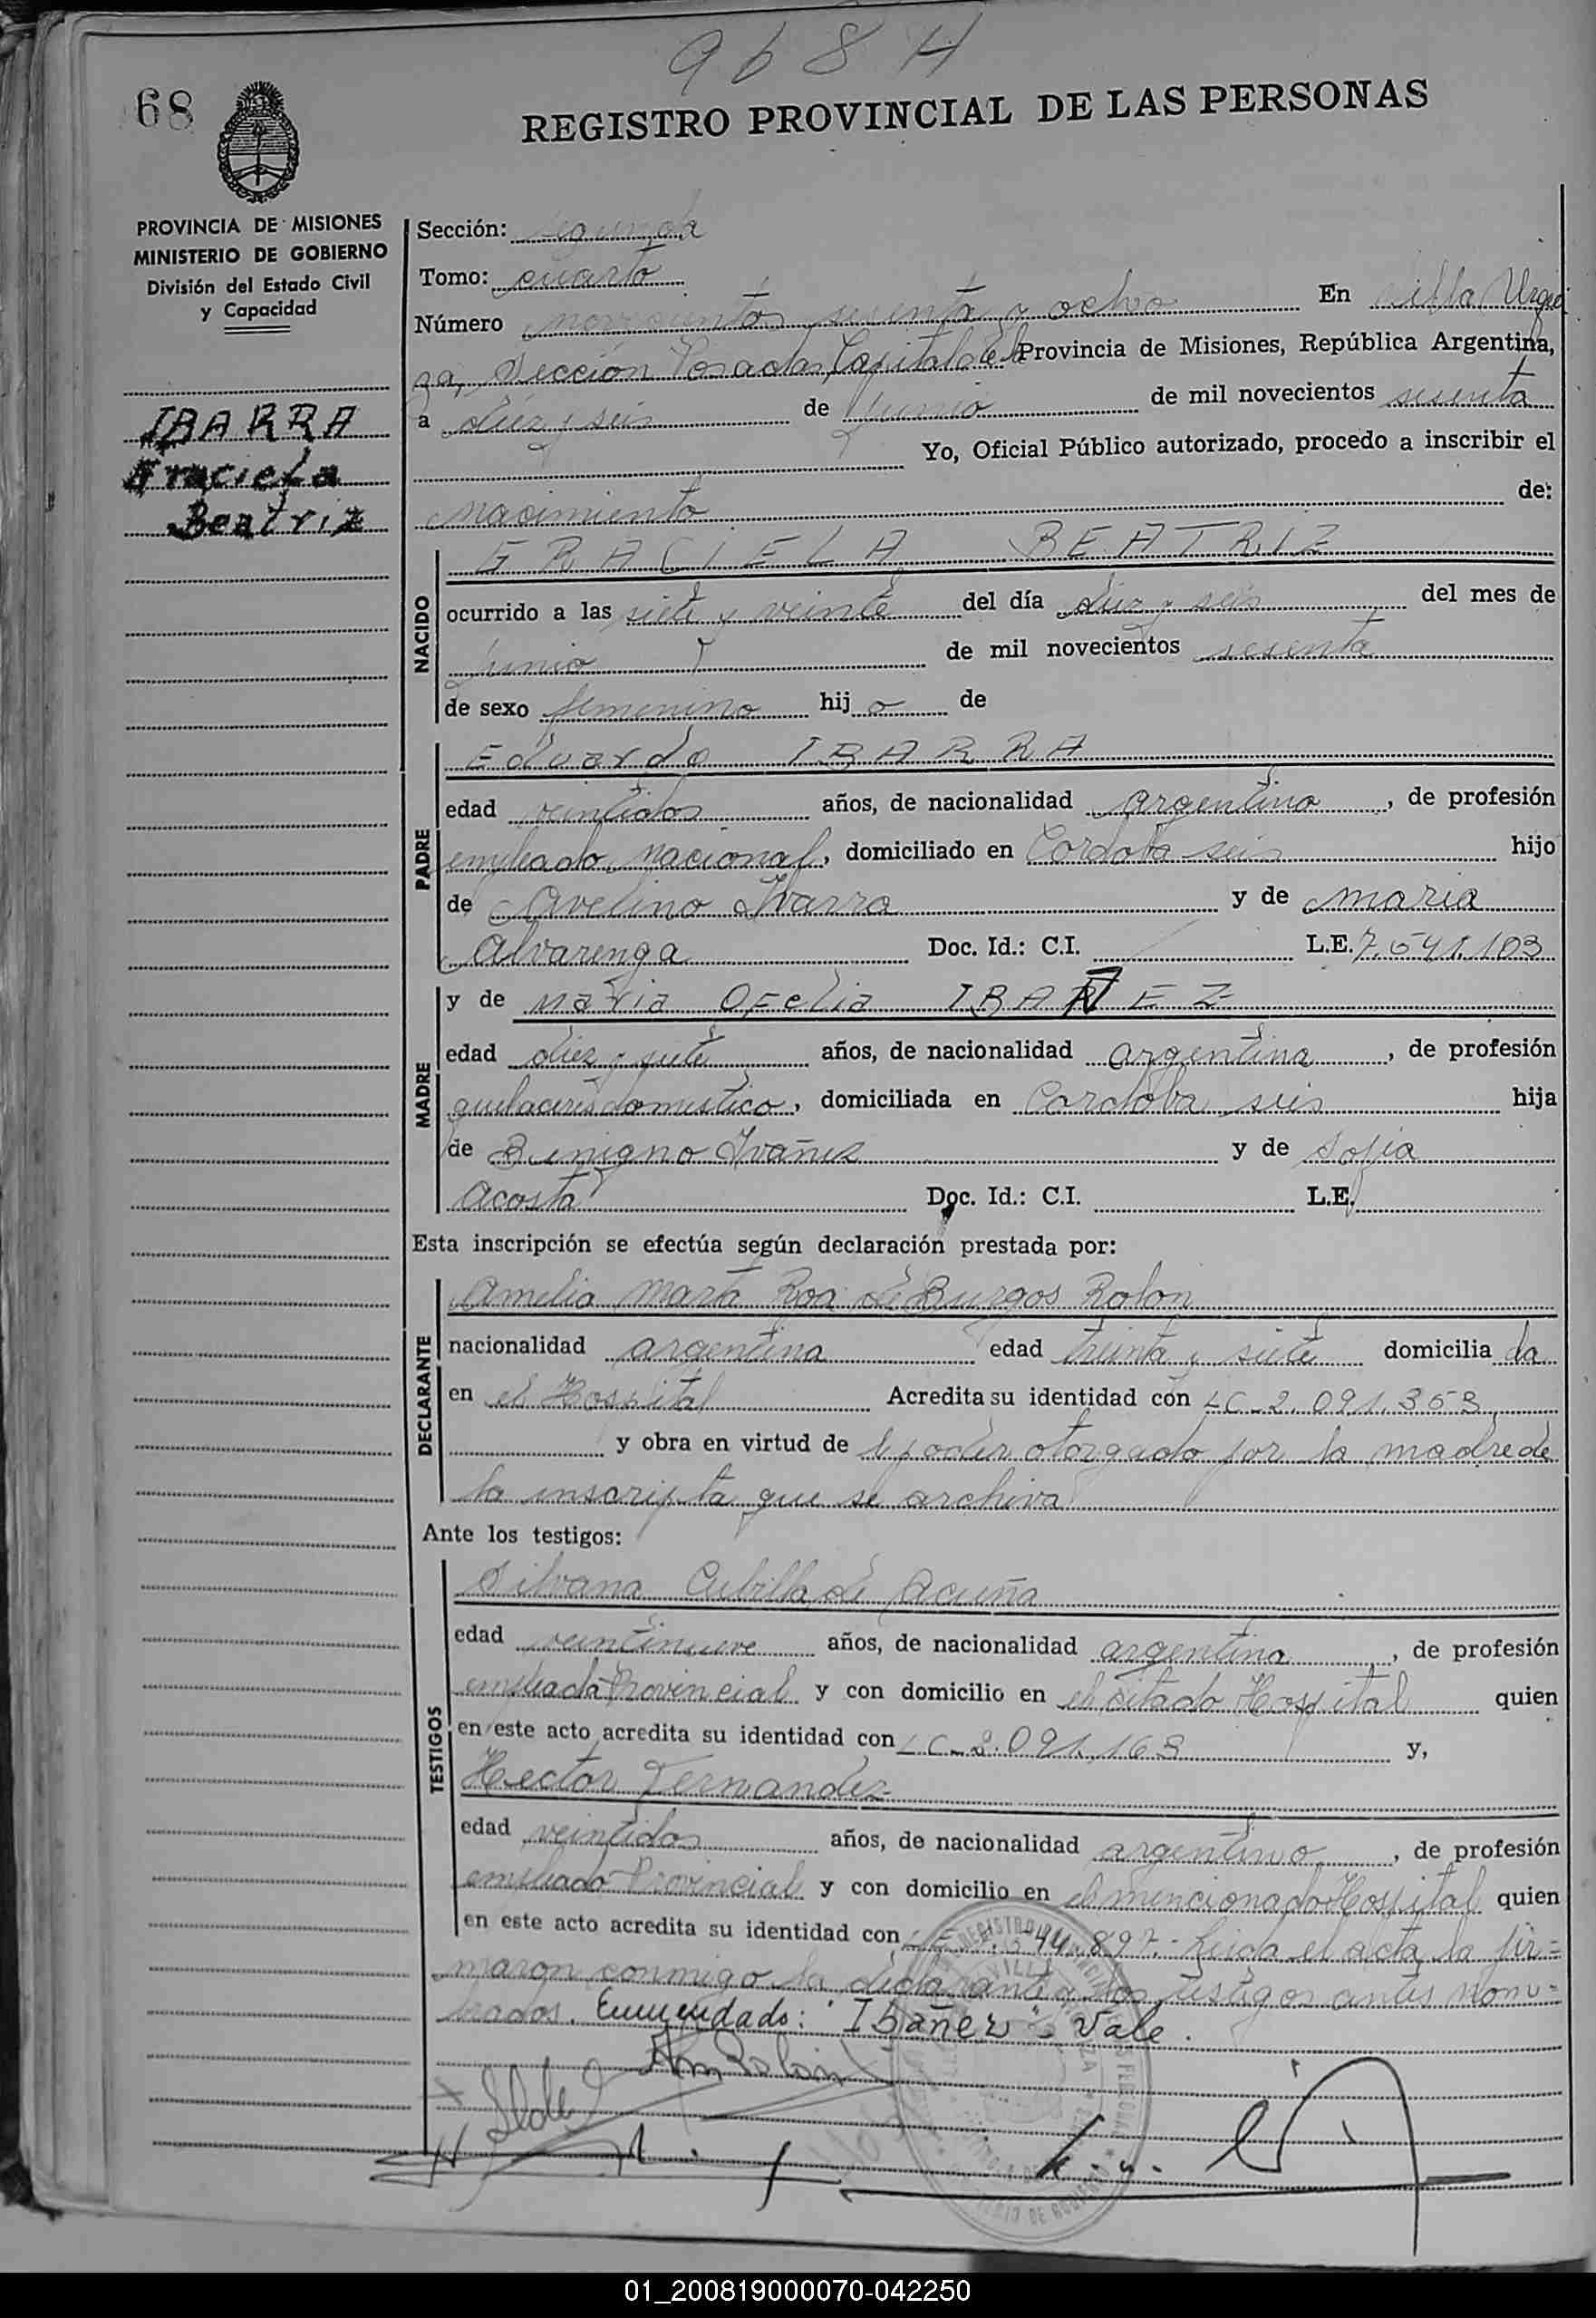 968 H
68
REGISTRO PROVINCIAL DE LAS PERSONAS
PROVINCIA DE MISIONES
MINISTERIO DE GOBIERNO
División del Estado Civil
y Capacidad
IBARRA
Graciela
Beatriz
Sección: segunda
Tomo: cuarto
Número novecientos sesenta y ocho En Villa Urqui
za, Sección Posadas, Capital de la Provincia de Misiones, República Argentina,
a diez y seis de junio de mil novecientos sesenta
Yo, Oficial Público autorizado, procedo a inscribir el
nacimiento de:
NACIDO
GRACIELA BEATRIZ
ocurrido a las siete y veinte del día diez y seis del mes de
junio de mil novecientos sesenta
de sexo femenino hij a de
PADRE
Eduardo IBARRA
edad veintidos años, de nacionalidad argentina, de profesión
empleado nacional, domiciliado en Cordoba seis hijo
de Avelino Ibarra y de maria
Alvarenga Doc. Id.: C.I. L.E. 7.541.103
MADRE
y de Maria Ofelia IBAÑEZ
edad diez y siete años, de nacionalidad argentina, de profesión
quehaceres domestico, domiciliada en Cordoba seis hija
de Benigno Ivañez y de Sofia
Acosta Doc. Id.: C.I. L.E.
Esta inscripción se efectúa según declaración prestada por:
DECLARANTE
Amelia Marta Roa de Burgos Rolon
nacionalidad argentina edad treinta y siete domicilia da
en el Hospital Acredita su identidad con LC-2.091.353
y obra en virtud de el poder otorgado por la madre de
la inscripta que se archiva
Ante los testigos:
TESTIGOS
Silvana Cubilla de Acuña
edad veintinueve años, de nacionalidad argentina, de profesión
empleada Provincial y con domicilio en el citado Hospital quien
en este acto acredita su identidad con LC-2.091.163 y,
Hector Fernandez
edad veintidos años, de nacionalidad argentino, de profesión
empleado Provincial y con domicilio en el mencionado Hospital quien
en este acto acredita su identidad con 44.897.- Leida el acta, la fir=
maron conmigo la declarante y los testigos antes nom=
brados. Enmendado: "Ibañez" - Vale.
01_200819000070-042250